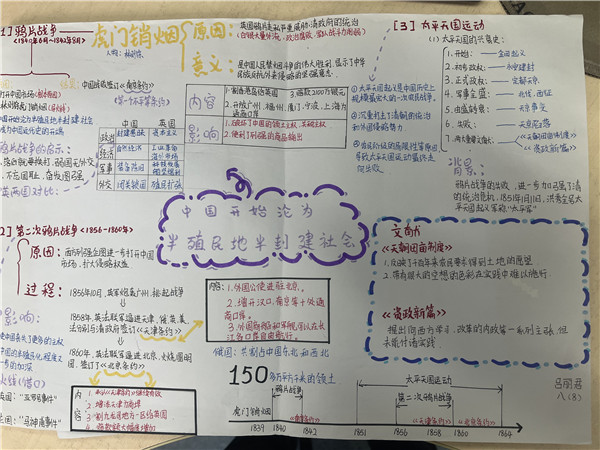 [1] 鸦片战争
<1840年6月~1842年8月>
虎门销烟
人物: 林则徐
原因:
英国鸦片走私严重威胁清政府的统治
(白银大量外流, 政治腐败, 军队战斗力削弱)
意义:
是中国人民禁烟斗争的伟大胜利, 显示了中华
民族反抗外来侵略的坚强意志.
中国战败签订《南京条约》
(第一个不平等条约)
内容
1. 割香港岛给英国
3. 赔款2100万银元
2. 开放广州、福州、厦门、宁波、上海为
通商口岸
影响
2. 便利了列强的商品输出
中国 英国
政治 封建君主 资本主义
经济 自然经济 工业革命
军事
外交 闭关锁国 殖民扩张
鸦片战争的启示:
落后就要挨打, 弱国无外交
中英两国对比:
[2] 第二次鸦片战争 <1856~1860年>
原因:
西方列强企图进一步打开中国
市场, 扩大侵略权益
过程:
1856年10月, 英军炮轰广州, 挑起战争
1858年, 英法联军逼进天津, 俄、美、
法分别与清政府签订《天津条约》
1860年, 英法联军逼进北京, 火烧圆明
园, 签订了《北京条约》
影响:
英国: “亚罗号事件”
法国: “马神甫事件”
内容
2. 增开天津为商埠
3. 割九龙司地方一区给英国
4. 赔款
中国开始沦为
半殖民地半封建社会
内容:
1. 外国公使进驻北京.
2. 增开汉口、南京等十处通
商口岸.
3. 外国商船和军舰可以在长
江各口岸自由航行.
俄国: 共割占中国东北和西北
150多万平方千米的领土
[3] 太平天国运动
(1) 太平天国的兴衰史:
1. 开始: 金田起义
2. 初步政权: 永安建制
3. 正式政权: 定都天京
4. 军事全盛: 北伐、西征
5. 由盛转衰: 天京事变
6. 失败: 天京陷落
7. 两大重要文献: 《天朝田亩制度》
《资政新篇》
① 太平天国起义是中国历史上
规模最宏大的一次农民战争.
② 沉重打击了清朝的统治
和外国侵略势力
③ 农民阶级的局限性等原因
导致太平天国运动最终走
向失败
背景:
鸦片战争的失败, 进一步加深了清
的统治危机, 1851年1月11日, 洪秀全在
太平天国起义军称“太平军”
文献
《天朝田亩制度》
1. 反映了千百年来农民要求得到土地的愿望
2. 带有很大的空想的色彩在实践中难以施行
《资政新篇》
提出向西方学习, 改革的内政等一系列主张, 但
未能付诸实践.
吕丽君
八(8)
鸦片战争
太平天国运动
第二次鸦片战争
虎门销烟
《南京条约》
《天津条约》
《北京条约》
1839 1840 1842 1851 1856 1858 1860 1864